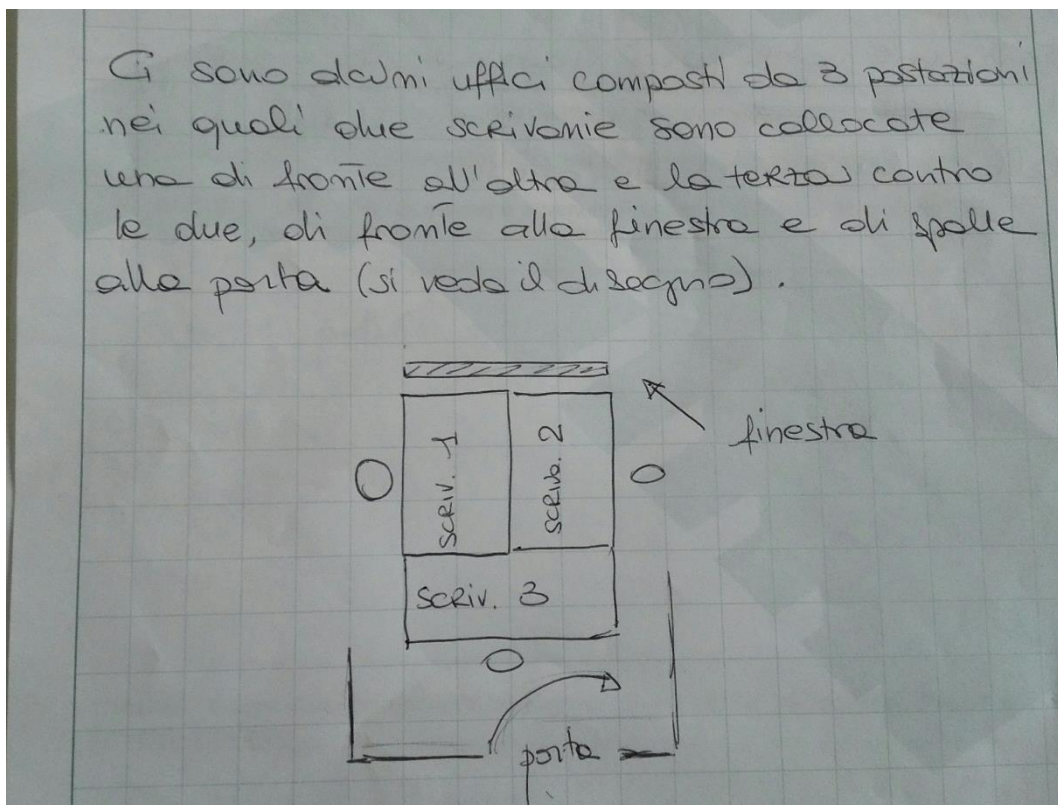 Ci sono alcuni uffici composti da 3 postazioni
nei quali due scrivanie sono collocate
una di fronte all'altra e la terza contro
le due, di fronte alla finestra e di spalle
alla porta (si veda il disegno).
finestra
SCRIV. 1
SCRIV. 2
SCRIV. 3
porta